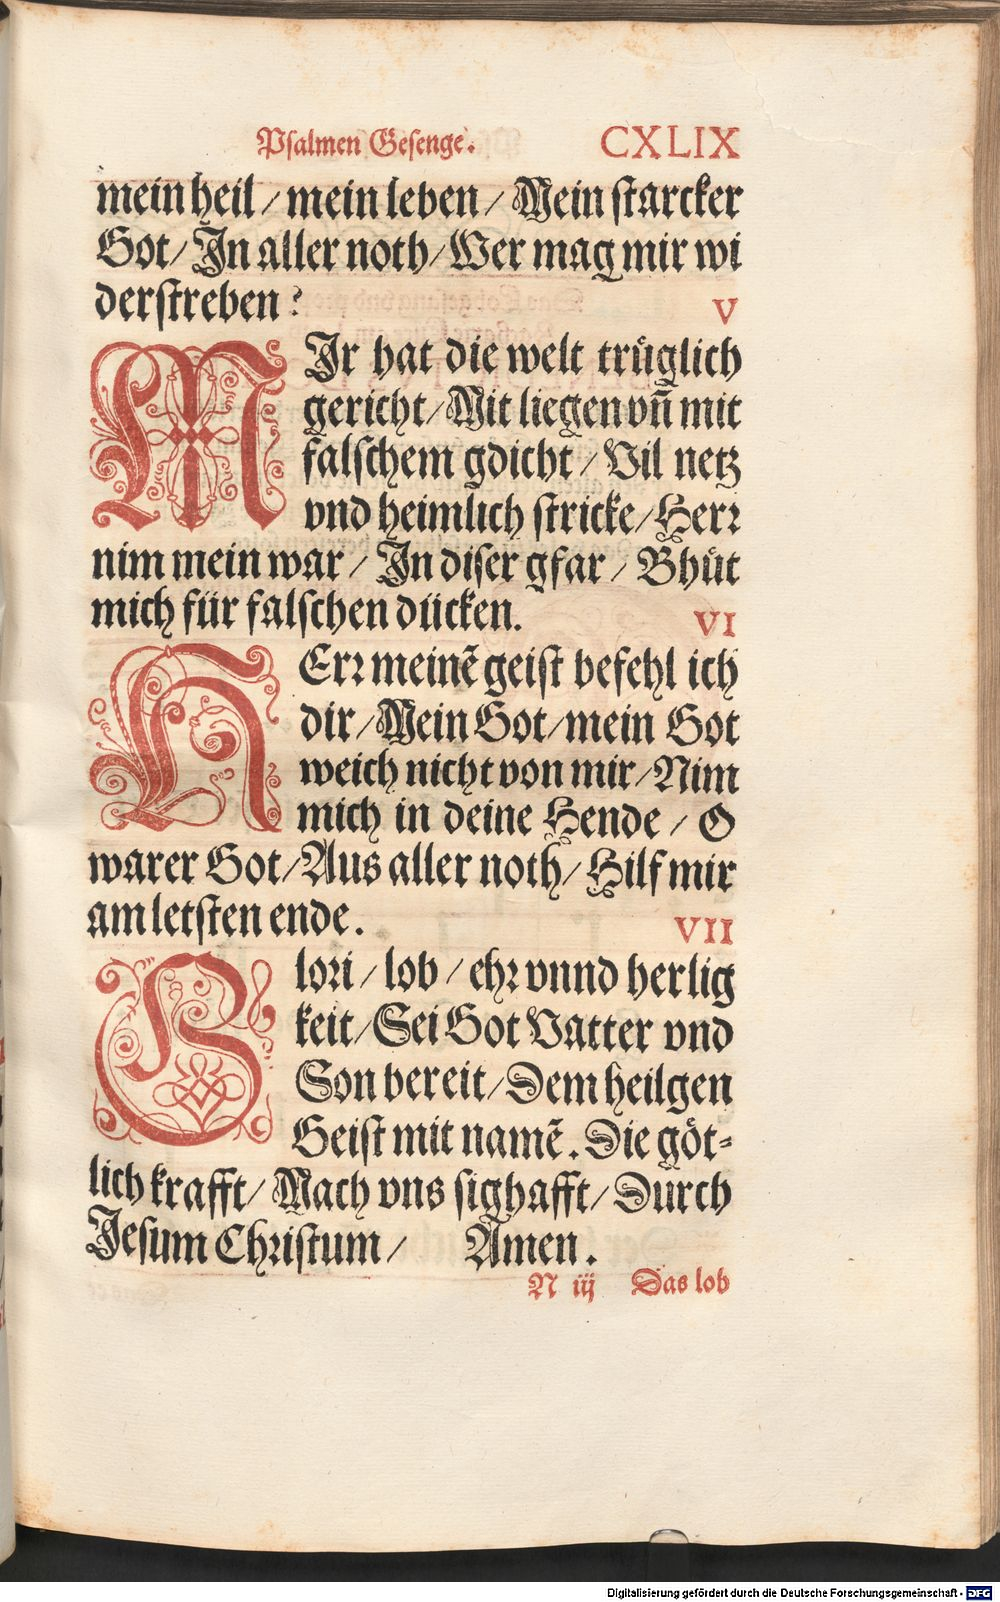 Psalmen Gesenge. CXLIX
mein heil / mein leben / Mein starcker
Got / In aller noth / Wer mag mir wi
derstreben? V
MIr hat die welt trüglich
gericht / Mit liegen vñ mit
falschem gdicht / Vil netz
vnd heimlich stricke / Herr
nim mein war / In diser gfar / Bhüt
mich für falschen dücken. VI
HErr meinẽ geist befehl ich
dir / Mein Got / mein Got
weich nicht von mir / Nim
mich in deine Hende / O
warer Got / Aus aller noth / Hilf mir
am letsten ende. VII
Glori / lob / ehr vnnd herlig
keit / Sei Got Vatter vnd
Son bereit / Dem heilgen
Geist mit namẽ. Die göt-
lich krafft / Mach vns sighafft / Durch
Jesum Christum / Amen.
N iij Das lob
Digitalisierung gefördert durch die Deutsche Forschungsgemeinschaft - DFG